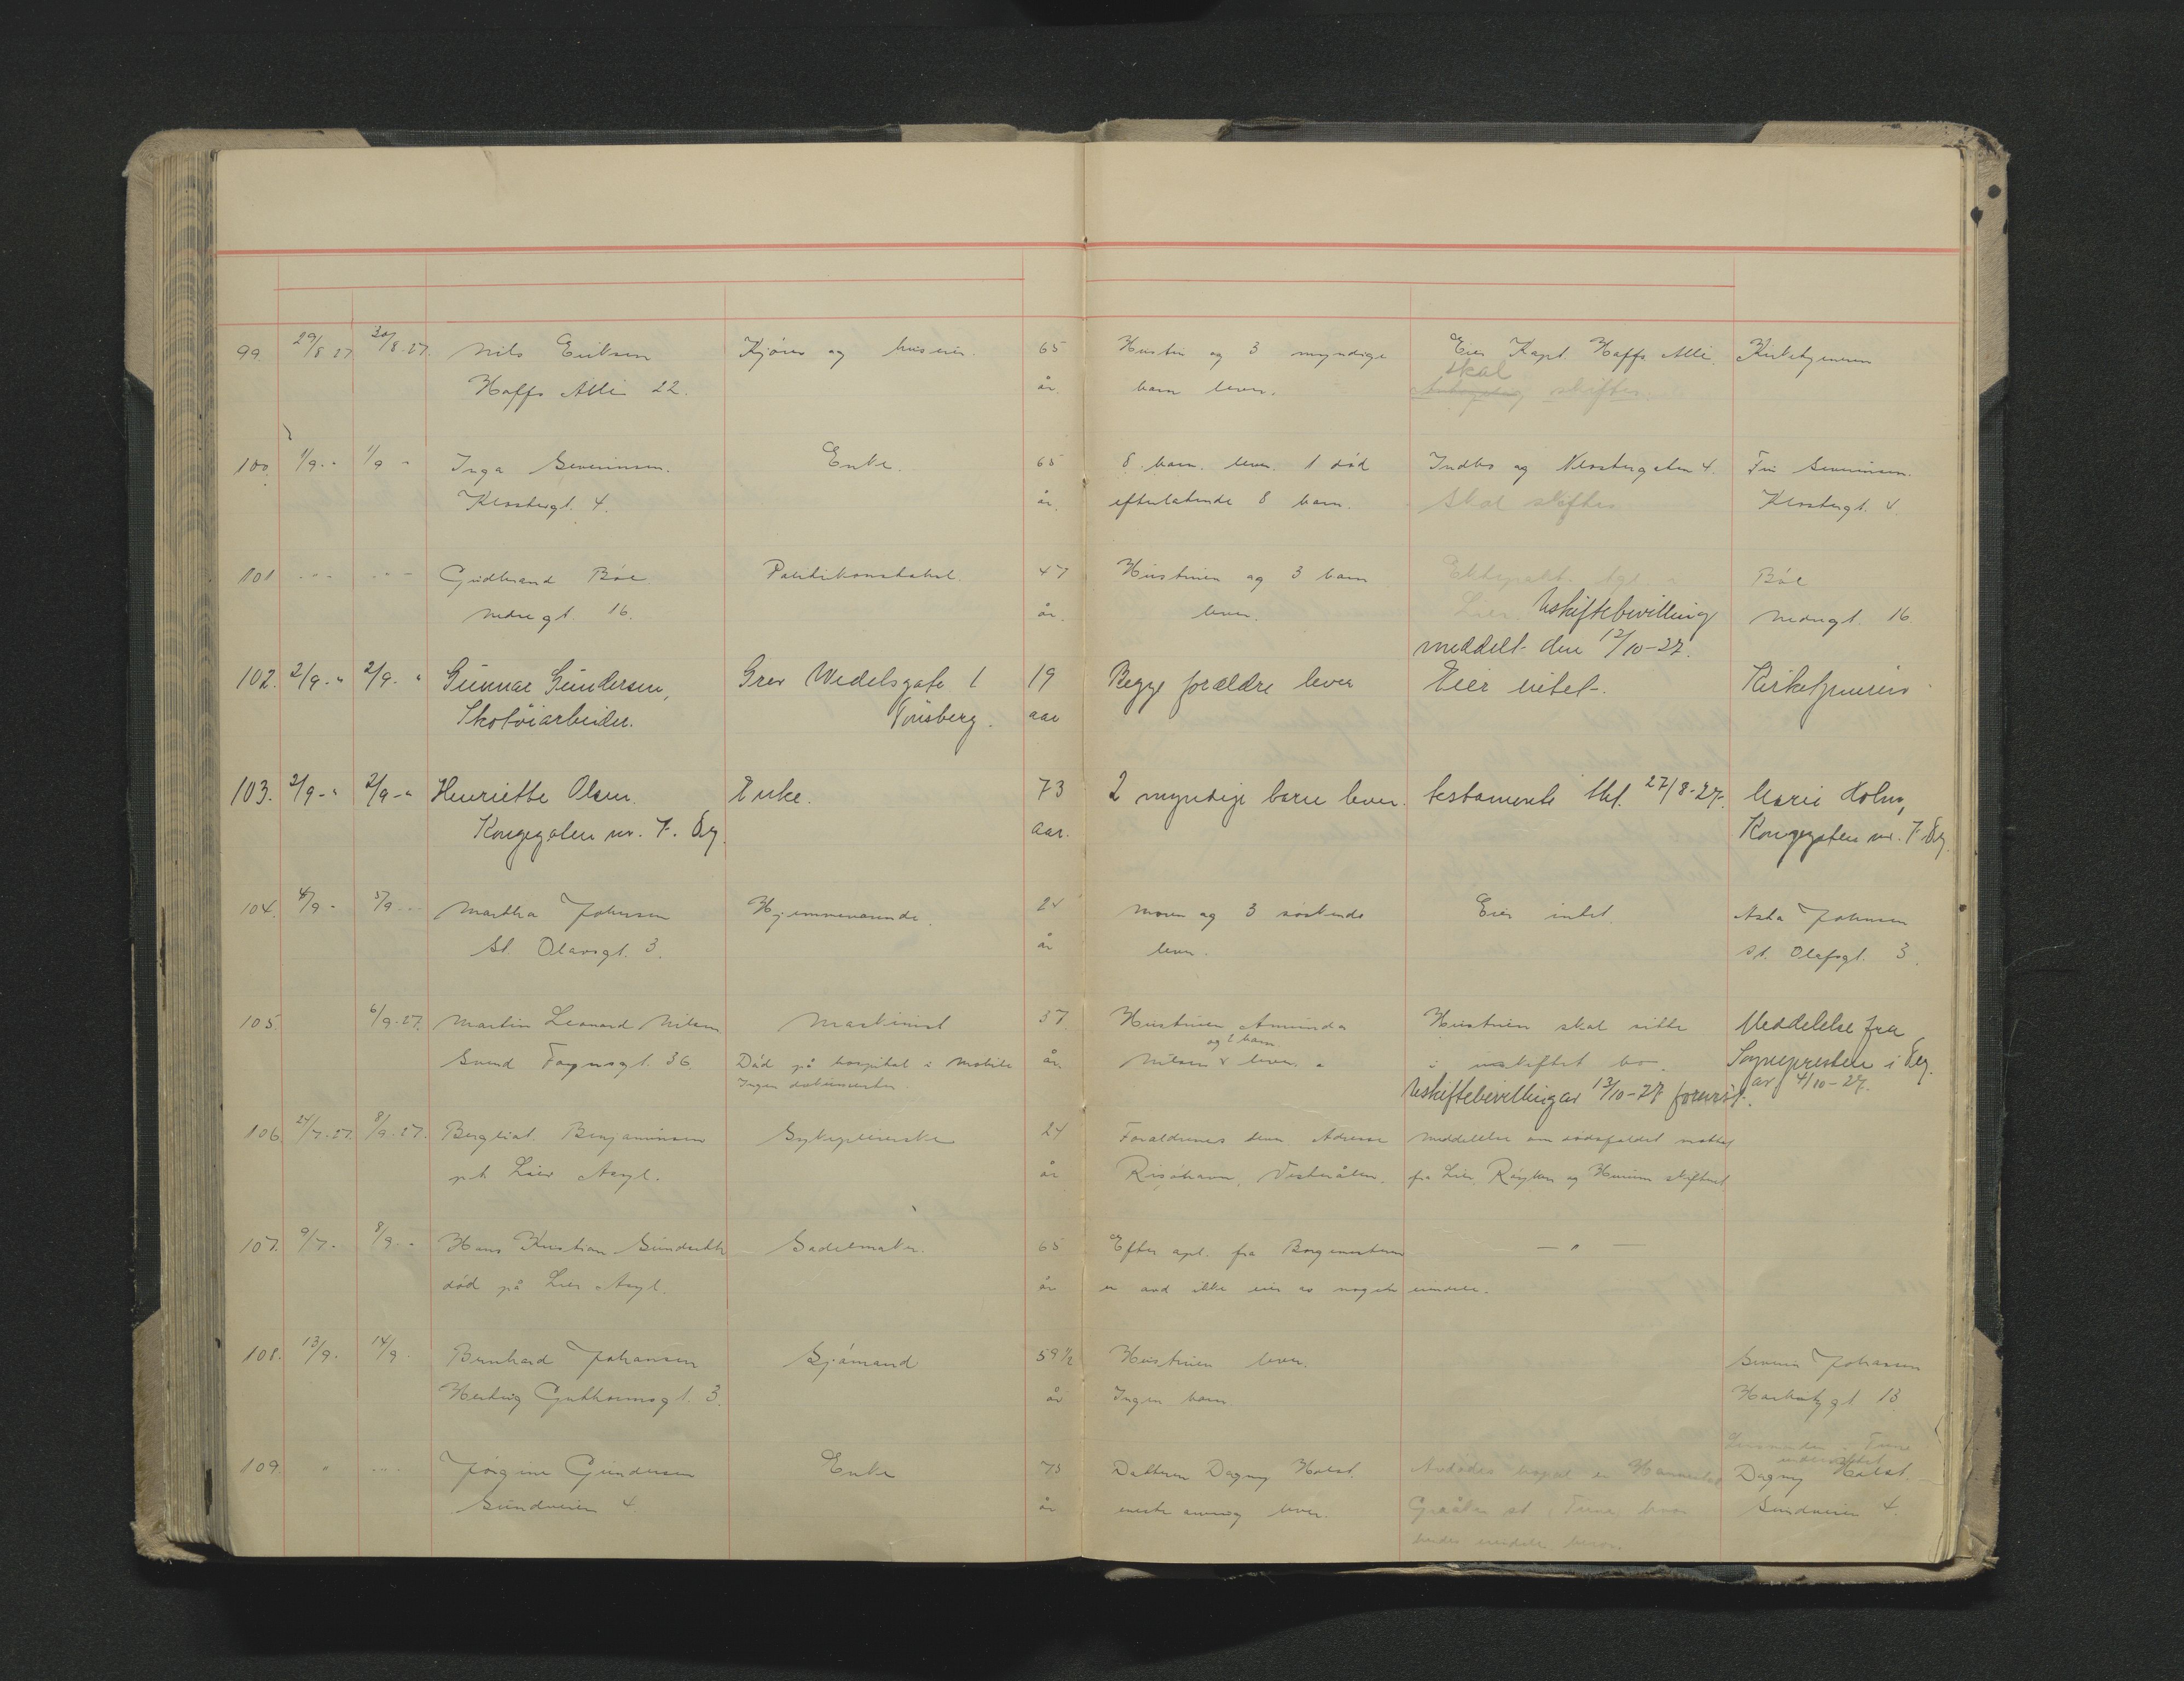 99. 29/8 27 30/8.27. Nils Eriksen Kjører og huseier. 65 Hustru og 3 myndige Eier Kapt. Hoffs Allé. Kirketjeneren
Hoffs Allé 22. år. barn lever. skal skiftes.
100. 1/9.- 1/9 - Inga Severinsen. Enke. 65 8 barn lever. 1 død Indbo og Klostergaten 4. Severinsen.
Klostergt. 4. år. efterlatende 8 barn. Skal skiftes Klostergt. 4.
101 Gudbrand Bøe Politikonstabel. 47 Hustruen og 3 barn Ektepakt Bøe
Nedregt. 16. år. lever. Lier. Uskiftebevilling Nedregt. 16
meddelt den 12/10-27.
102. 2/9.- " 2/9. " Gunnar Gundersen, Grev Wedelsgate 1 19 Begge forældre lever Eier intet. Kirketjeneren
Skotøiarbeider. Tønsberg. aar
103. 2/9-" 2/9-" Henriette Olsen. Enke. 73 2 myndige barn lever. testamente 27/8-27. Marie Holm,
Kongegaten nr. 7. Tbg. aar. Kongegaten nr. 7 Tbg.
104. 4/9 - 5/9 -- Martha Johnsen Hjemmeværende. 24 Moren og 3 søskende Eier intet. Asta Johnsen
St. Olavsgt. 3. år lever. St. Olafsgt. 3.
105. 6/9.27. Martin Leonard Nilsen Maskinist 37 Hustruen Amunda Hustruen skal sitte Meddelelse fra
og 2 barn
Svend Foynsgt. 36. Død på hospital i Mobile år. Nilsen lever. i uskiftet bo. Sognepresten i Tbg.
Ingen dokumenter. Uskiftebevilling av 13/10-27 forevist. av 4/10-27.
106. 24/7.27. 8/9.27. Bergliot Benjaminsen Sykepleierske 24 Forældrenes Adresse Meddelelse om dødsfaldet mottat
pt. Lier Asyl. år Risøhavn, Vesterålen. fra Lier, Røyken og Hurum skifteret
107. 9/7. 8/9.- Hans Kristian Sadelmaker. 65 Efter opl. fra Borgmesteren — " —
død på Lier Asyl. år er avd ikke eier av nogen eiendele.
108. 13/9. 14/9. Bernhard Johansen Sjømand 59 1/2 Hustruen lever. Johansen
Hertug Guthormsgt. 3. år Ingen barn. 13
109. " Jørgine Gundersen Enke 75 Datteren Dagny Holst. Avdødes bopæl er Dagny Holst.
Sundveien 4. år eneste arving lever. st. Tune, hvor Sundveien 4.
hendes eiendele beror.